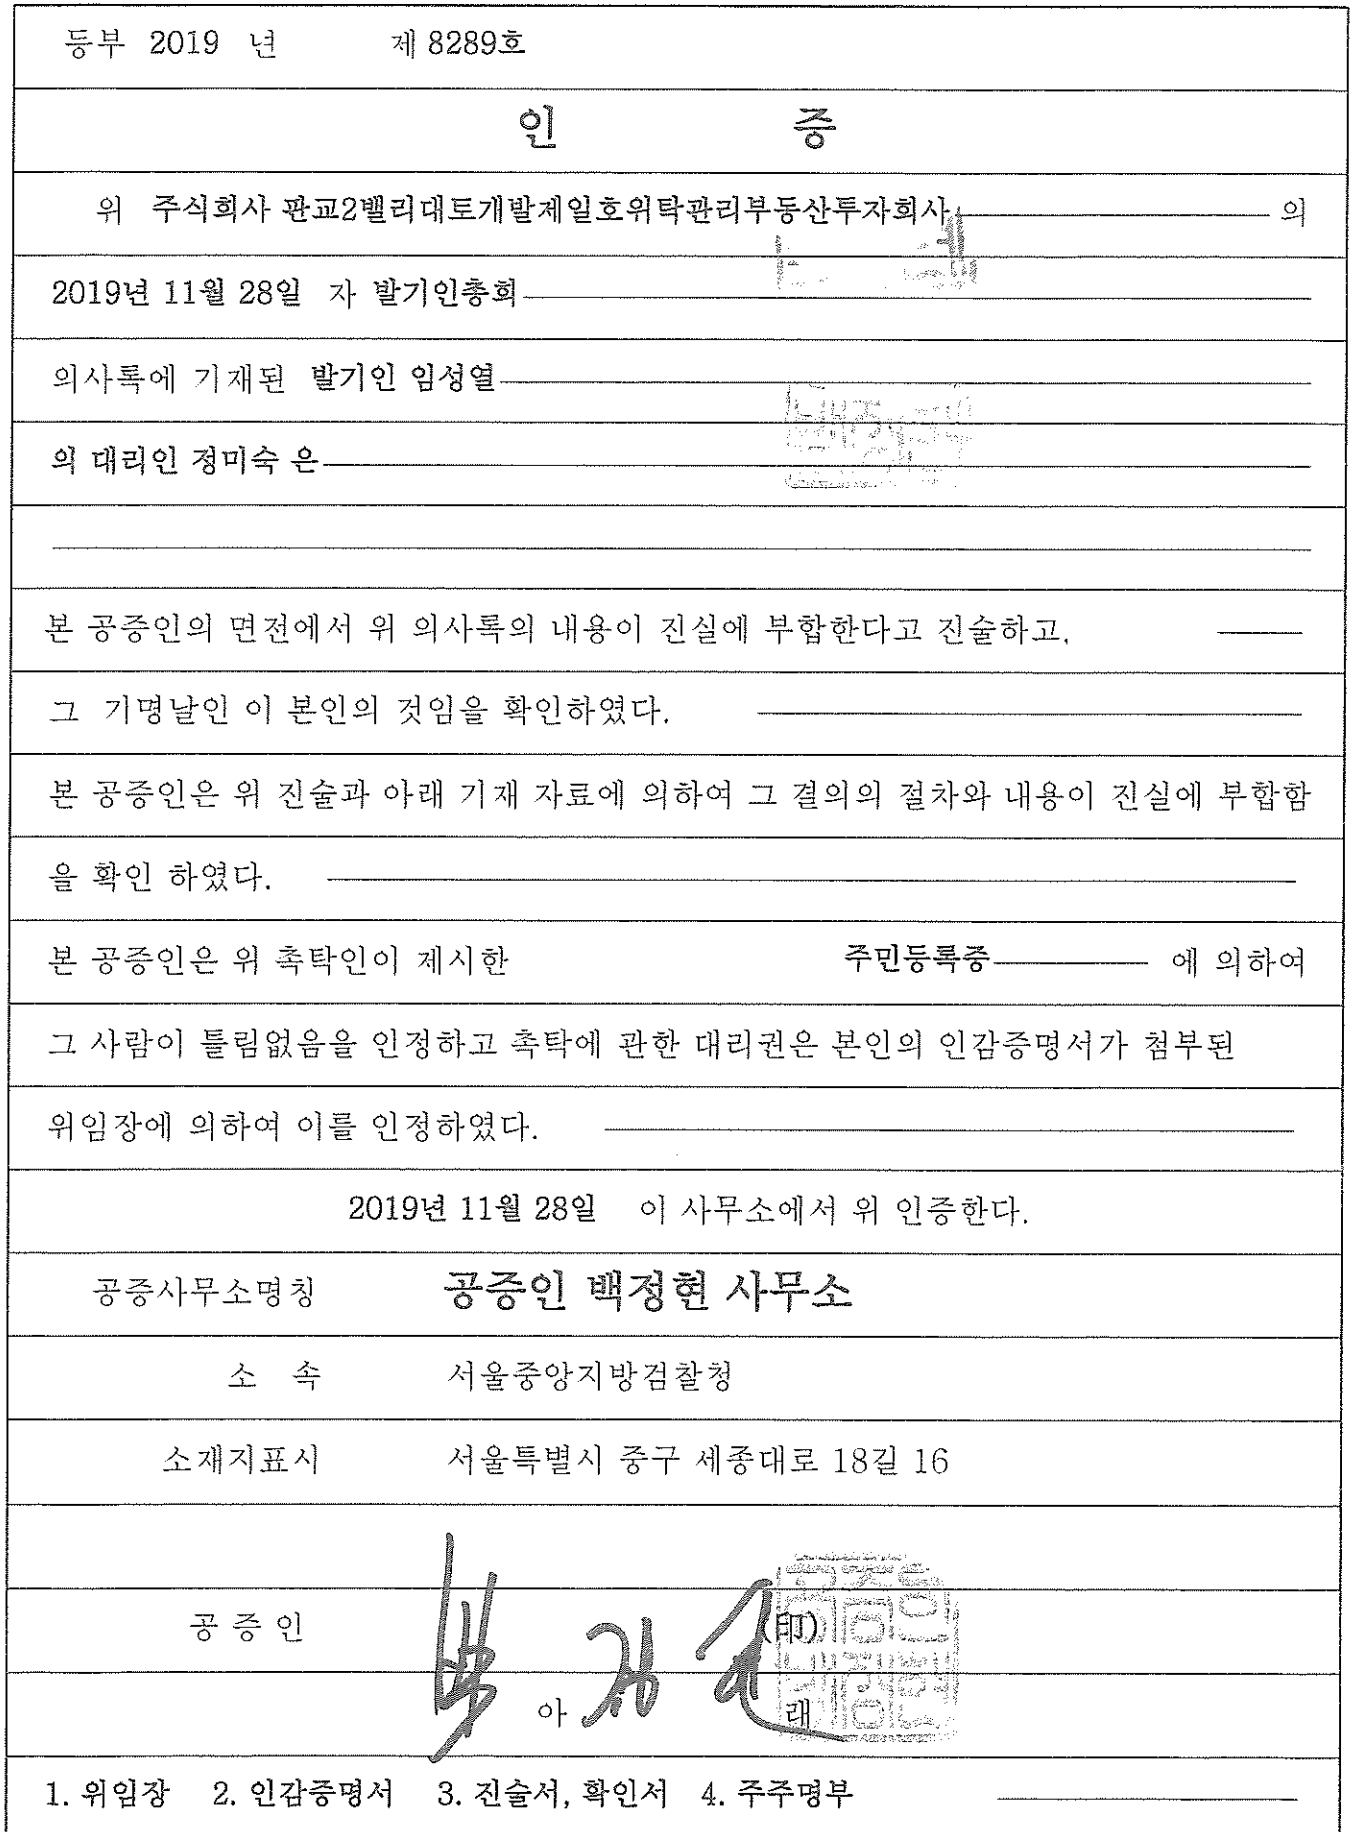 등부 2019 년 제 8289호
인 증
위 주식회사 판교2밸리대토개발제일호위탁관리부동산투자회사 의
2019년 11월 28일 자 발기인총회
의사록에 기재된 발기인 임성열
의 대리인 정미숙 은
본 공증인의 면전에서 위 의사록의 내용이 진실에 부합한다고 진술하고,
그 기명날인 이 본인의 것임을 확인하였다.
본 공증인은 위 진술과 아래 기재 자료에 의하여 그 결의의 절차와 내용이 진실에 부합함
을 확인 하였다.
본 공증인은 위 촉탁인이 제시한 주민등록증 에 의하여
그 사람이 틀림없음을 인정하고 촉탁에 관한 대리권은 본인의 인감증명서가 첨부된
위임장에 의하여 이를 인정하였다.
2019년 11월 28일 이 사무소에서 위 인증한다.
공증사무소명칭 공증인 백정현 사무소
소 속 서울중앙지방검찰청
소재지표시 서울특별시 중구 세종대로 18길 16
공 증 인 (印)
아 래
1. 위임장 2. 인감증명서 3. 진술서, 확인서 4. 주주명부